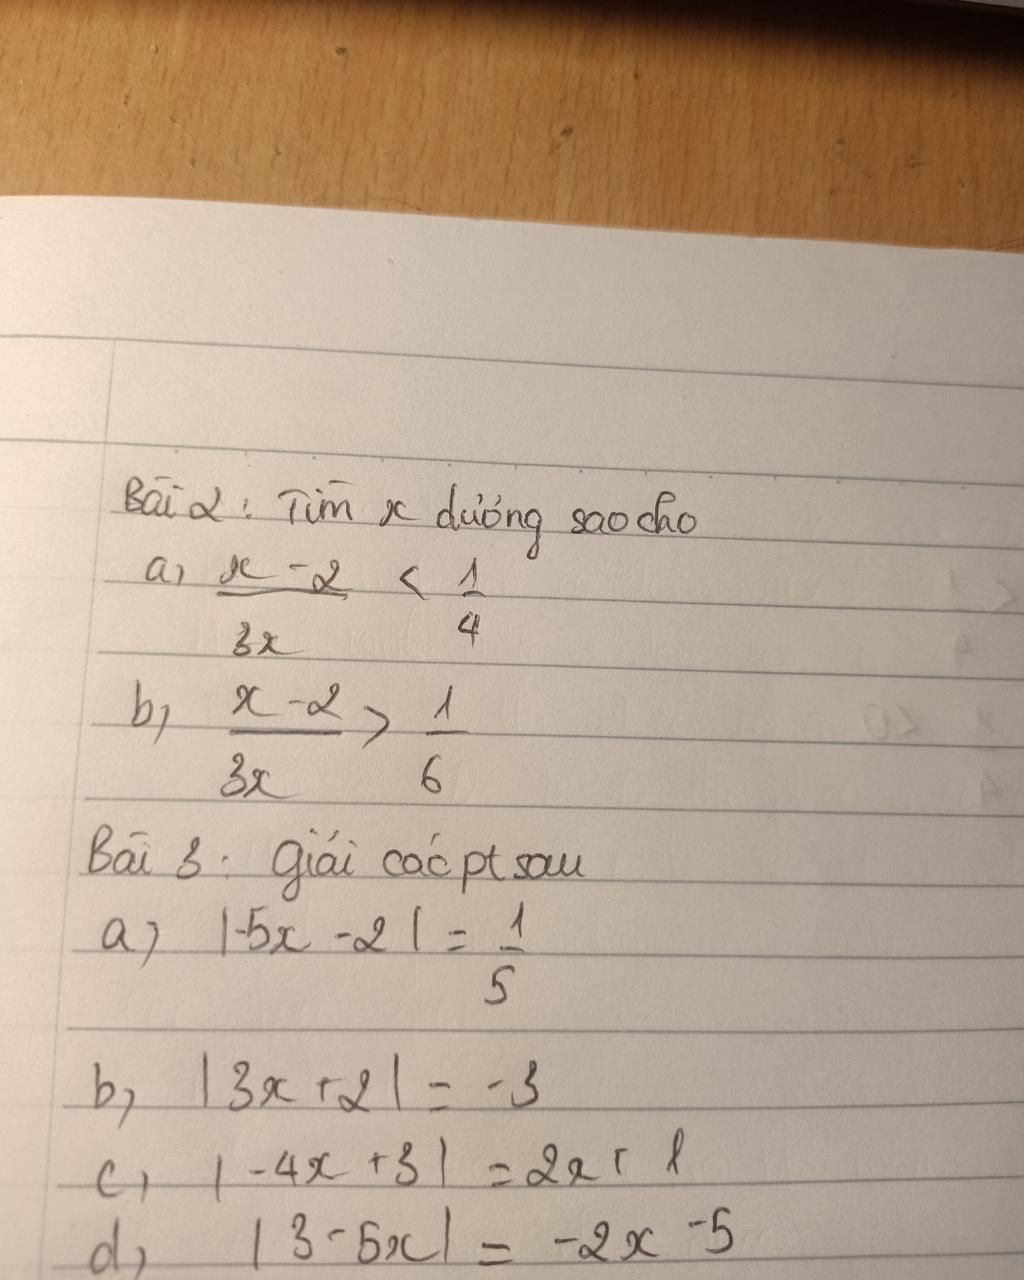 Bài 2 : Tìm x dương sao cho
a, x - 2 / 3x < 1/4
b, x - 2 / 3x > 1/6
Bài 3 : Giải các pt sau
a) |-5x - 2| = 1/5
b, |3x + 2| = -3
c, |-4x + 3| = 2x + 1
d, |3 - 5x| = -2x - 5